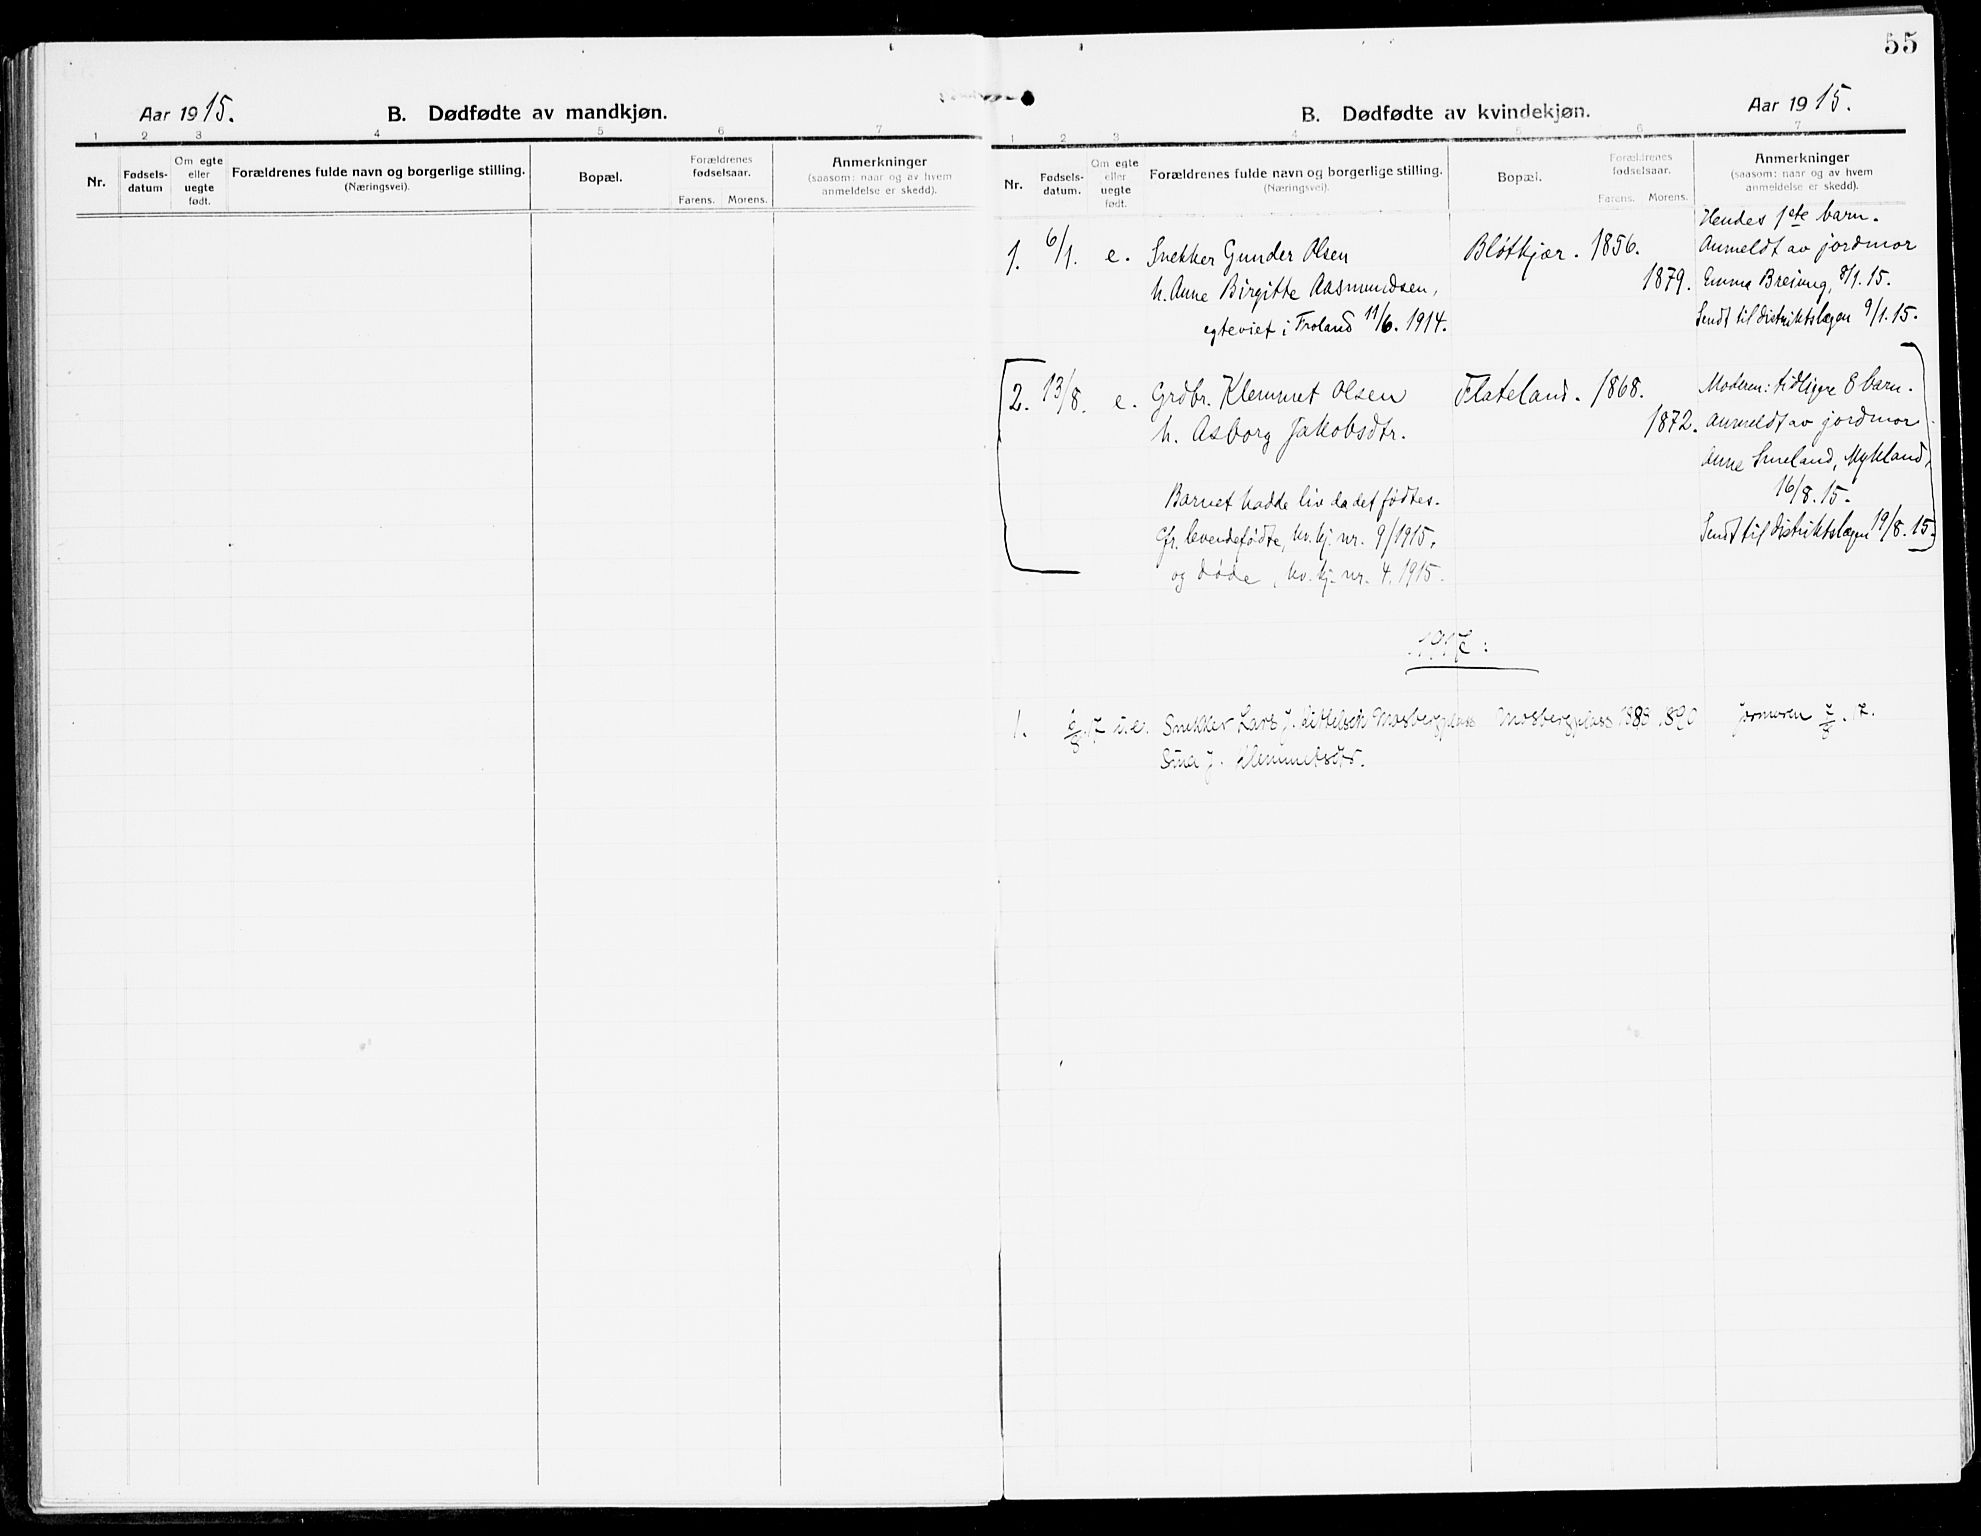 55
Aar 1915. B. Dødfødte av mandkjøn.
1 2 3 4 5 6 7
Nr.
Fødsels-
datum
Om egte
eller
uegte
født.
Forældrenes fulde navn og borgerlige stilling.
(Næringsvei).
Bopæl.
Forældrenes
fødselsaar.
Farens. Morens.
Anmerkninger
(saasom: naar og av hvem
anmeldelse er skedd).
B. Dødfødte av kvindekjøn. Aar 1915.
1 2 3 4 5 6 7
Nr.
Fødsels-
datum.
Om egte
eller
uegte
født.
Forældrenes fulde navn og borgerlige stilling.
(Næringsvei).
Bopæl.
Forældrenes
fødselsaar.
Farens. Morens.
Anmerkninger
(saasom: naar og av hvem
anmeldelse er skedd).
1. 6/1. e. Snekker Gunder Olsen
h. Anne Birgitte Aasmundsen,
egteviet i Froland 11/6. 1914.
Bløtkjær. 1856.
1879.
Hendes 1ste barn.
Anmeldt av jordmor
Emma Breiung, 8/1. 15.
Sendt til distriktslægen 9/1. 15.
2. 13/8. e. Grdbr. Klemmet Olsen
h. Asborg Jakobsdtr.
Flateland. 1868.
1872.
Moderen: tidligere 8 barn.
Anmeldt av jordmor
Anne Smeland, Mykland,
16/8. 15.
Sendt til distriktslægen 19/8. 15.
Barnet hadde liv da det fødtes.
Cfr. levendefødte, kv. kj. nr. 9/1915,
og døde, kv. kj. nr. 4. 1915.
1917:
1. u.e. Snekker Lars J. Kittelsen Mosbergplass Mosbergplass 1888 1890
J. Klemmetsdtr.
Jormoren